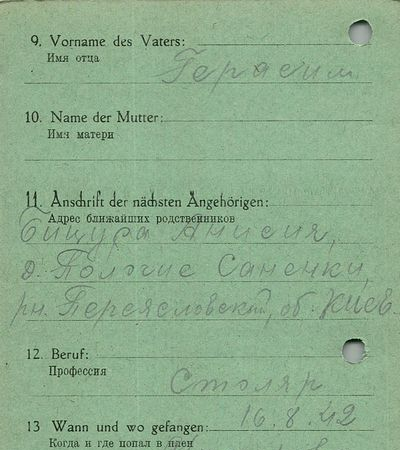 9. Vorname des Vaters:
Имя отца
Герасим
10. Name der Mutter:
Имя матери
11. Anschrift der nächsten Angehörigen:
Адрес ближайших родственников
Анисия,
д. Саненки,
рн. Переясловский, об. Киев
12. Beruf:
Профессия
Столяр
13 Wann und wo gefangen:
16.8.42
Когда и где попал в плен